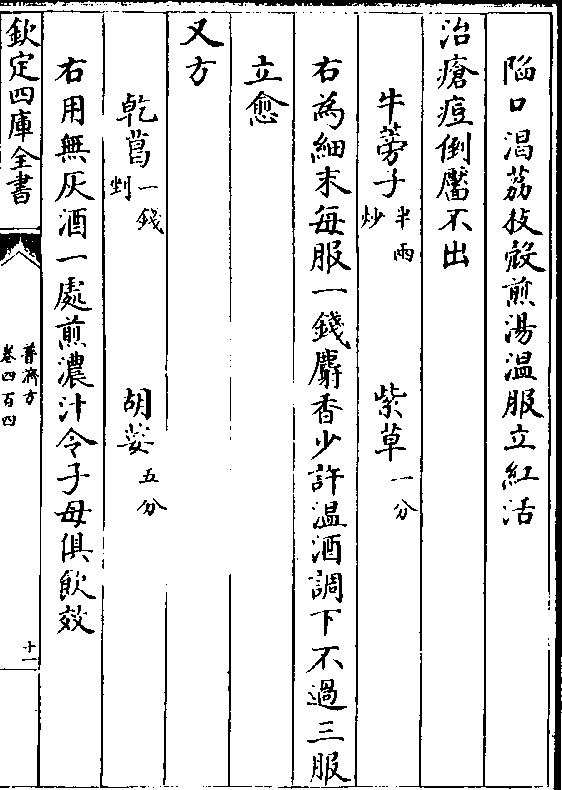 陷口渴荔枝殼煎湯温服立紅活
治瘡痘倒黶不出
牛蒡子半兩炒 紫草一分
右為細末每服一錢麝香少許温酒調下不過三服
立愈
又方
乾葛一錢剉 胡荽五分
右用無灰酒一處煎濃汁令子母俱飲效
欽定四庫全書
普濟方
卷四百四
十一